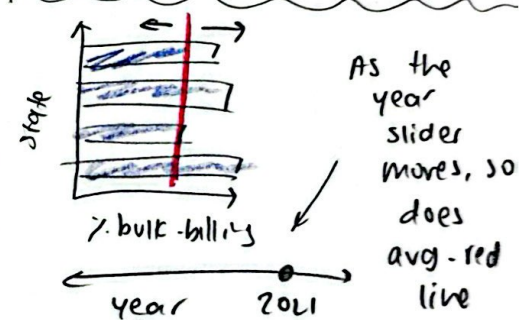 State
% bulk-billing
year
2021
As the
year
slider
moves, so
does
avg-red
line